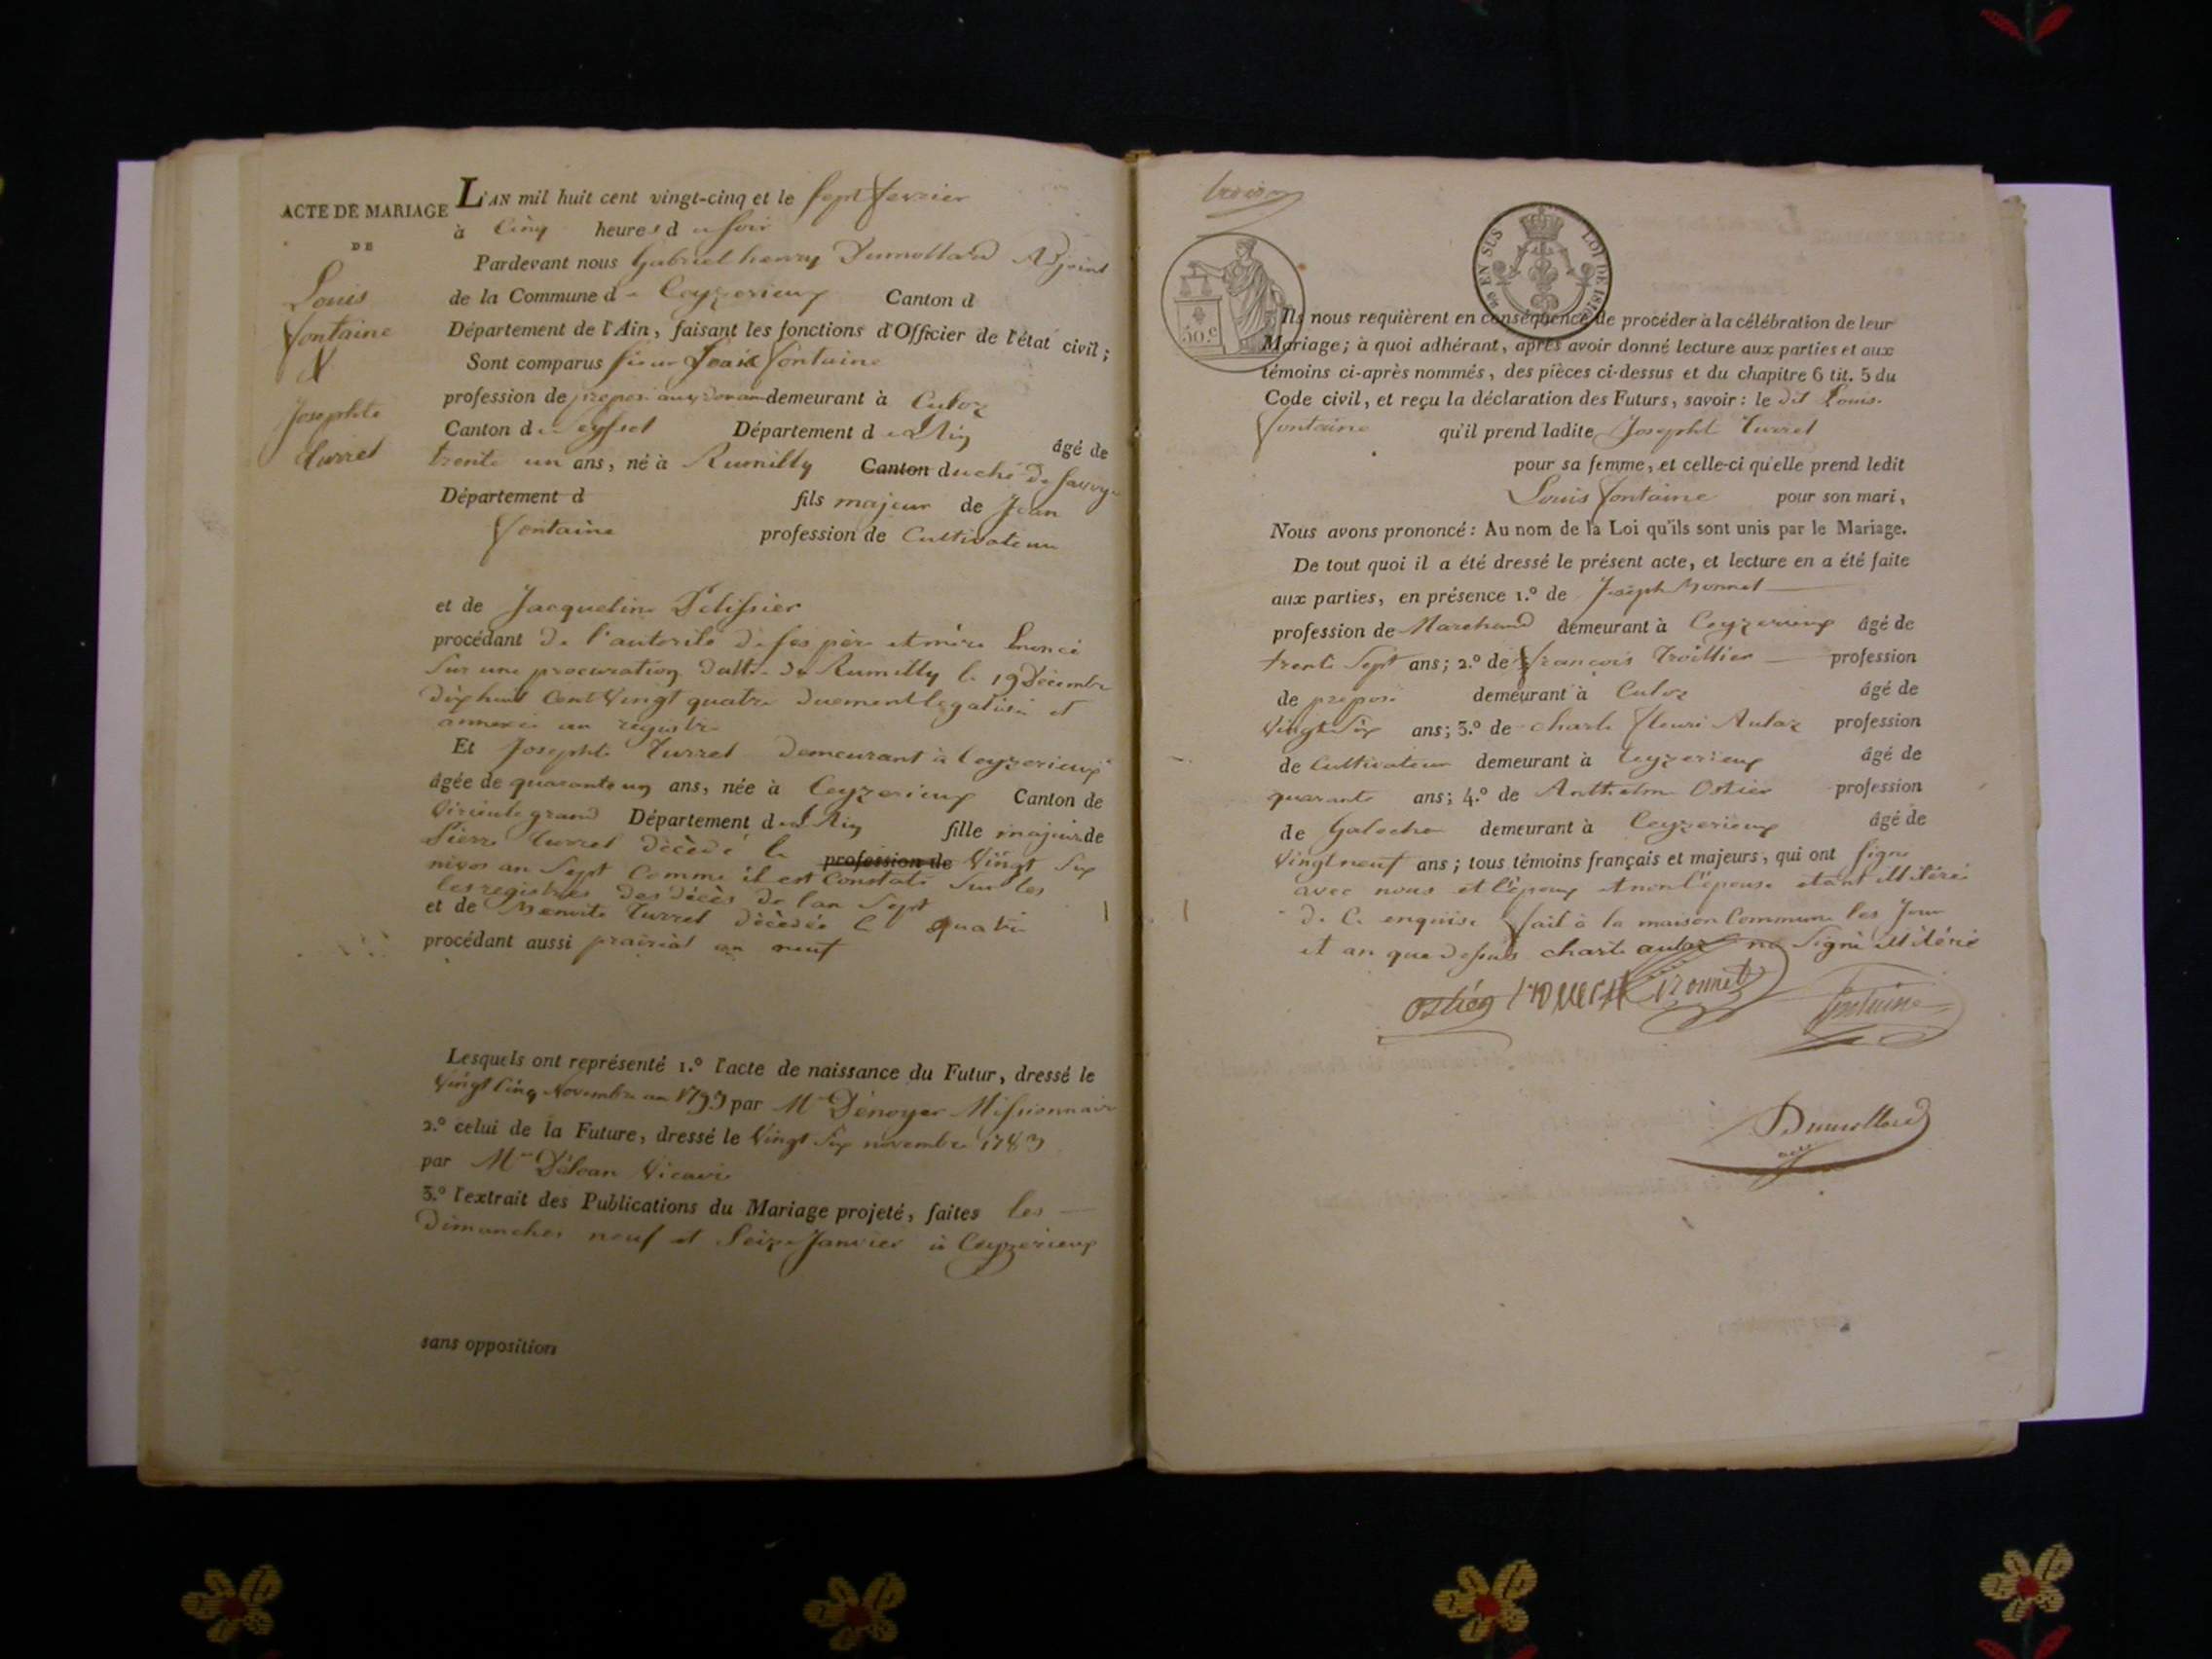 ACTE DE MARIAGE
DE
Louis
fontaine
&
Josephte
Turrel
L'AN mil huit cent vingt-cinq et le sept fevrier
à Cinq heures du soir
Pardevant nous Gabriel henry Dumollard Adjoint
de la Commune de Ceyzerieux Canton d
Département de l'Ain, faisant les fonctions d'Officier de l'état civil;
Sont comparus sieur Louis fontaine
profession de préposé aux douanes demeurant à Culoz
Canton de Seyssel Département de L'Ain âgé de
trente un ans, né à Rumilly Canton duché de Savoye
Département d fils majeur de Jean
fontaine profession de Cultivateur
et de Jacqueline Pelissier
procédant de l'autorité de ses père et mère énoncé
sur une procuration datté de Rumilly le 19 Décembre
dix huit Cent Vingt quatre duement legalisée et
annexée au registre
Et Josephte Turrel demeurant à Ceyzerieux
âgée de quarante un ans, née à Ceyzerieux Canton de
Virieu le grand Département de L'Ain fille majeur de
Pierre Turrel décédé le profession de Vingt Six
nivos an Sept Comme il est Constaté Sur les
les registres des décès de l'an Sept
et de Benoite Turrel décédée le quatre
procédant aussi prairial an neuf
Lesquels ont représenté 1.° l'acte de naissance du Futur, dressé le
Vingt Cinq Novembre an 1793 par Mr Dénoyer Missionnaire
2.° celui de la Future, dressé le Vingt Six novembre 1783
par Mre Vicaire
3.° l'extrait des Publications du Mariage projeté, faites les
Dimanches neuf et Seize Janvier à Ceyzerieux
sans opposition
EN SUS LOI DE 1816
50 c
Ils nous requièrent en conséquence de procéder à la célébration de leur
Mariage; à quoi adhérant, après avoir donné lecture aux parties et aux
témoins ci-après nommés, des pièces ci-dessus et du chapitre 6 tit. 5 du
Code civil, et reçu la déclaration des Futurs, savoir: le dit Louis
fontaine qu'il prend ladite Josephte Turrel
pour sa femme, et celle-ci qu'elle prend ledit
Louis fontaine pour son mari,
Nous avons prononcé: Au nom de la Loi qu'ils sont unis par le Mariage.
De tout quoi il a été dressé le présent acte, et lecture en a été faite
aux parties, en présence 1.° de Joseph Monnet
profession de Marchand demeurant à Ceyzerieux âgé de
trente Sept ans; 2.° de françois Trollier profession
de préposé demeurant à Culoz âgé de
Vingt Six ans; 3.° de charle fleuri Aulaz profession
de Cultivateur demeurant à Ceyzerieux âgé de
quarante ans; 4.° de Anthelme Ostier profession
de Galocher demeurant à Ceyzerieux âgé de
Vingt neuf ans; tous témoins français et majeurs, qui ont signé
avec nous et l'époux et non l'épouse etant illitérée
de Ce enquise fait à la maison Commune les Jour
et an que dessus charle aulaz ne Signé illitéré
ostier Monnet fontaine
Dumollard
adj